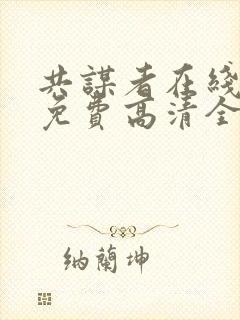 共謀者在綫
免費高清全
納蘭坤